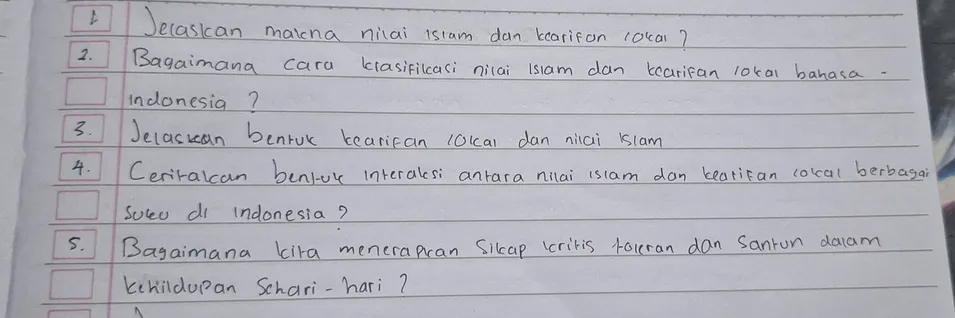 1. Jelaskan makna nilai islam dan kearifan lokal ?
2. Bagaimana cara klasifikasi nilai Islam dan kearifan lokal bahasa -
indonesia ?
3. Jelaskan bentuk kearifan lokal dan nilai islam
4. Ceritakan bentuk interaksi antara nilai islam dan kearifan lokal berbagai
suku di indonesia ?
5. Bagaimana kita menerapkan Sikap kritis toleran dan Santun dalam
kehildupan Sehari - hari ?